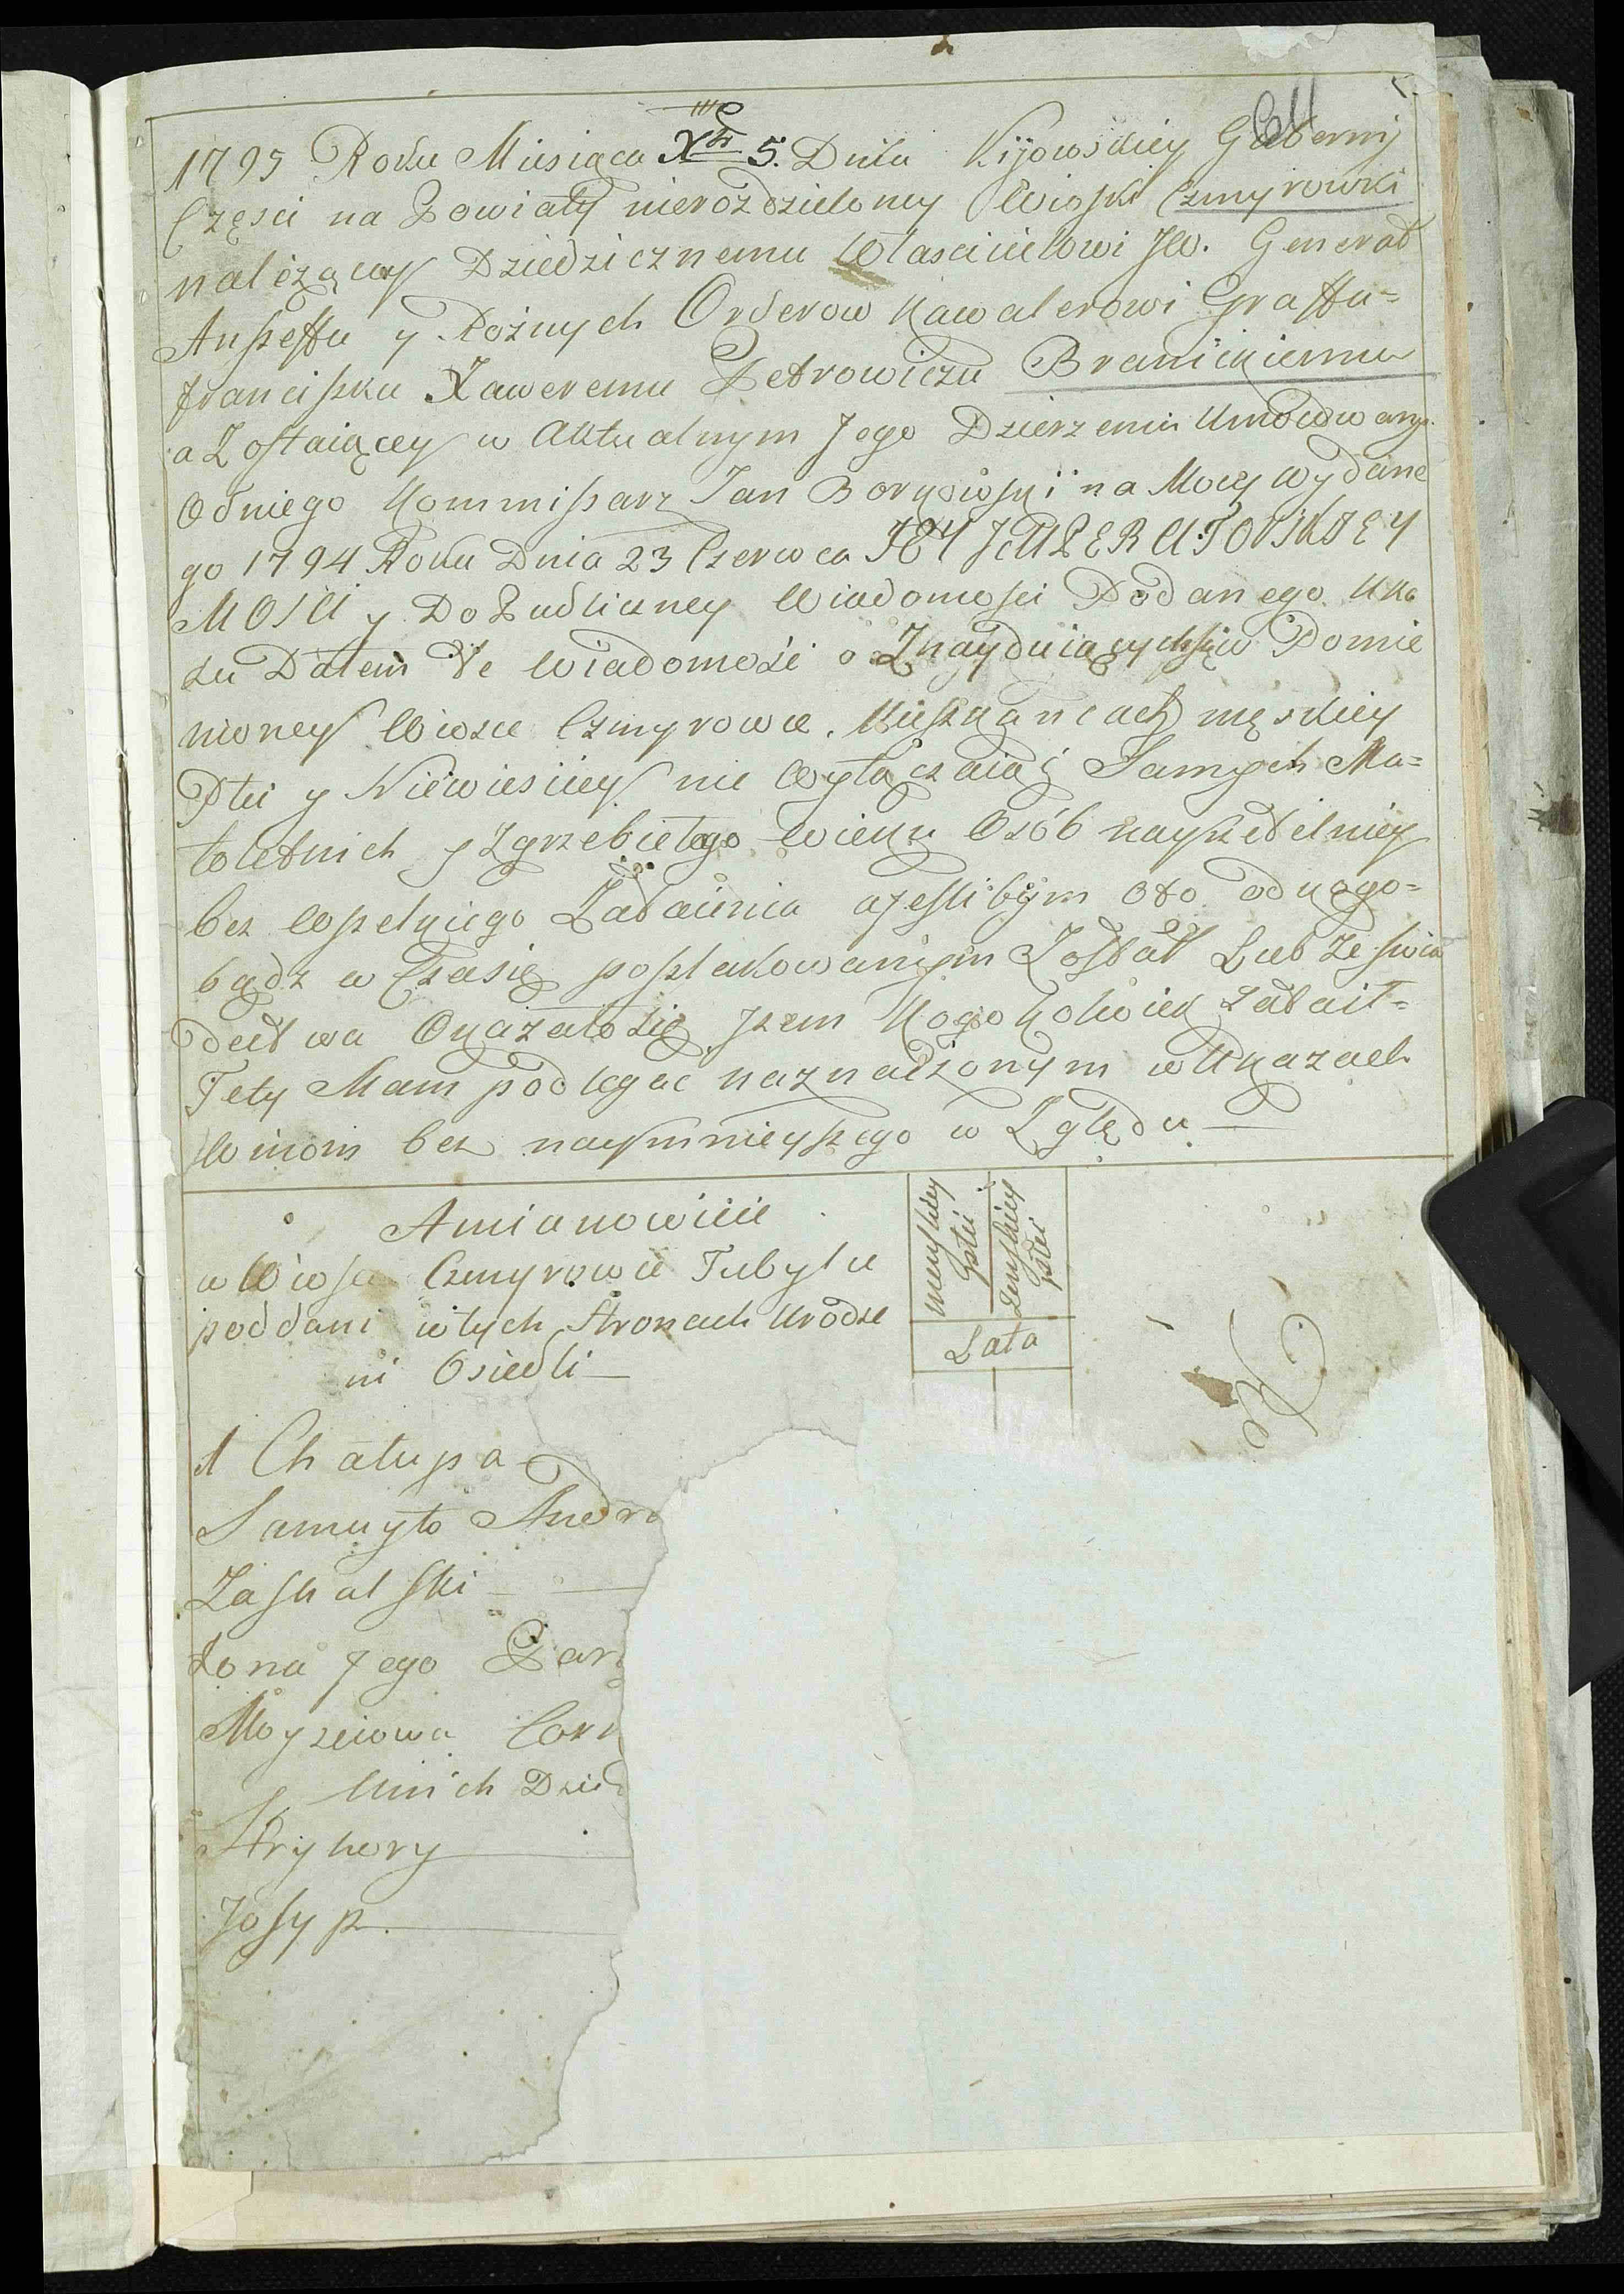 1795 Roku Miesiąca Xbr 5. Dnia Kijowskiey Gubernij
Częsci na Powiaty nierozdzieloney Wioski Czmyrowki
należącey Dziedzicznemu Własciicielowi JW. Generał
Anszeffu y Rożnych Orderow Kawalerowi Graffu=
Franciszku Xaweremu Petrowiczu Branickiemu
a Zostaiącey w Aktualnym Jego Dzierzeniu
Odniego Kommissarz Jan na Mocy wydane
go 1794 Roku Dnia 23 Czerwca JEY JMPERATORSKIEY
MOSCI y Do Publiczney Wiadomosci Podanego Uka
zu Dałem Te Wiadomość o Znayduiących się w Pomie
nioney Wiosce Czmyrowce Mieszkańcach męskiey
Płci y Niewiesciey nie Wyłączaiąc Samych Ma=
łoletnich y Zgrzebiełego Wieku Osób nayrzetelniey
bez Wszelkiego Zataienia a jeslibym oto od kogo=
bądz w Czasie poszlakowanym Został Lub ze swia
dectwa Okazało się żem Kogokolwiek zataił=
Tety Mam podlegac naznaczonym w Ukazach
Winom bez naymnieyszego w Zględu
Amianowicie
w Wiosce Czmyrowce Tubylce
poddani w tych Stronach Urodze
ni Osiedli
męskiey płci
żenskiey płci
Lata
1 Chałupa
Samuyło Andr
Zaskalski
Żona Jego Par
Moyzeiowa Cor
Unich Dzie
Hryhory
Josyp